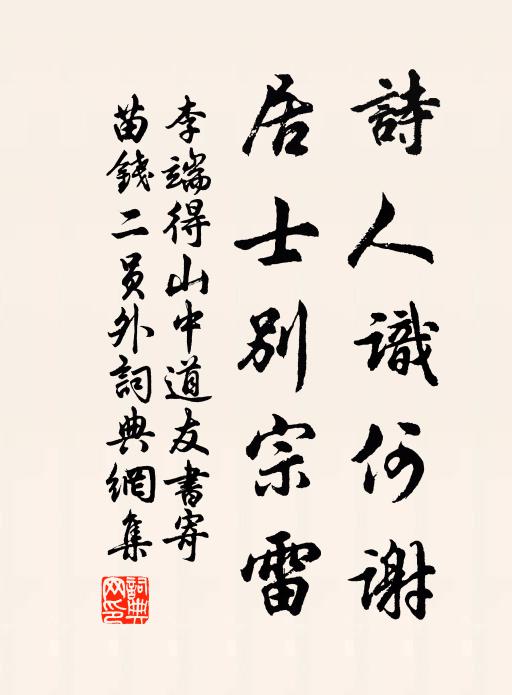 詩人識何謝
居士別宗雷
李端得山中道友書寄
苗錢二員外詞典網集
詞典網印